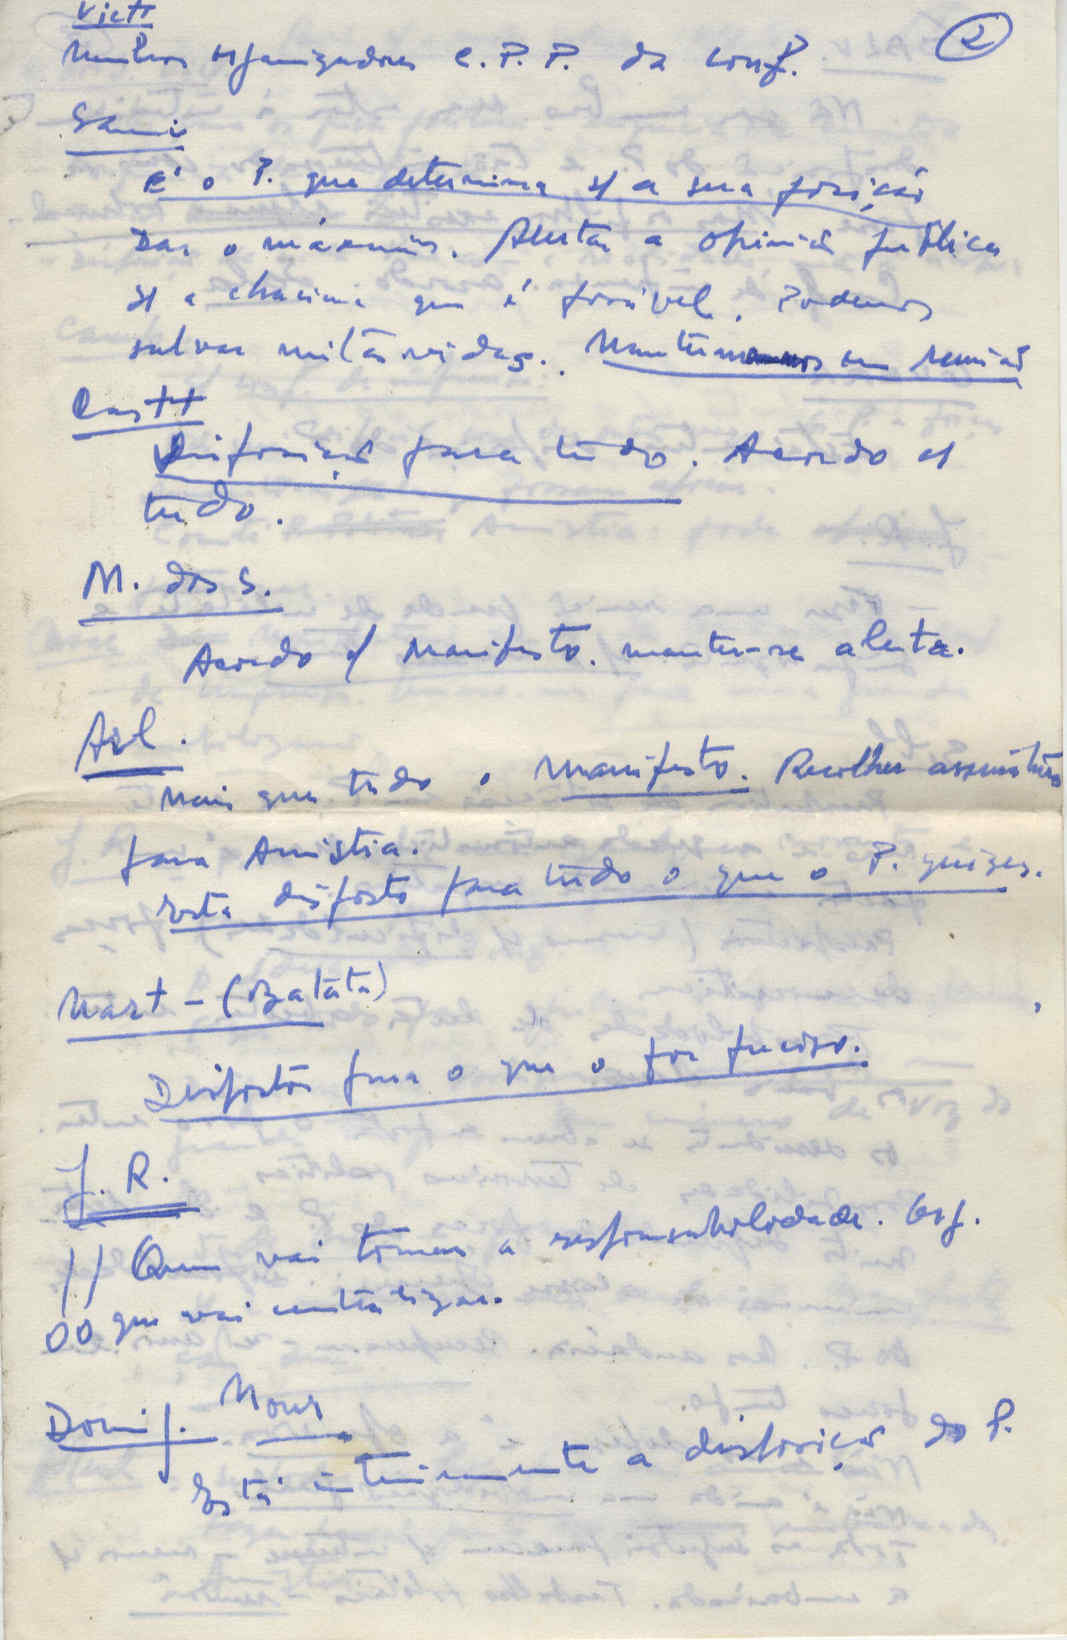 Vict
②
Membros organizadores C.P.P. da conf.
É o P. que determina s/ a sua posição
Dar o máximo. Alertar a opinião pública
s/ a chacina que é possível. Podemos
salvar mitas vidas. em reunião
Castt
Disposição para tudo. Acordo c/
tudo.
M. dos S.
Acordo c/ Manifesto. manter-se alerta.
Abl.
Mais que tudo o Manifesto. Recolher assinaturas
para Amistia.
Está disposto para tudo o que o P. quizer.
Mart - (Batata)
Disposto para o que o for preciso.
J. R.
// Quem vai tomar a responsabilidade.
00 que vai centralizar.
Dom
Está inteiramente a disposição do P.